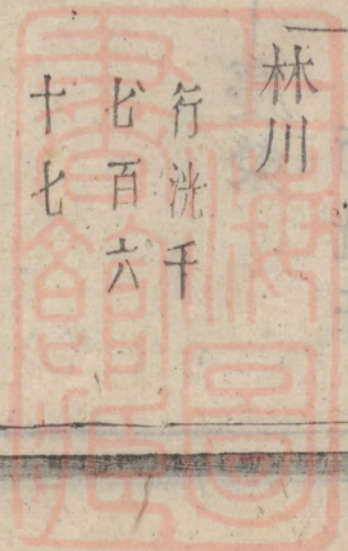 林川
行洸千
七百六
十七